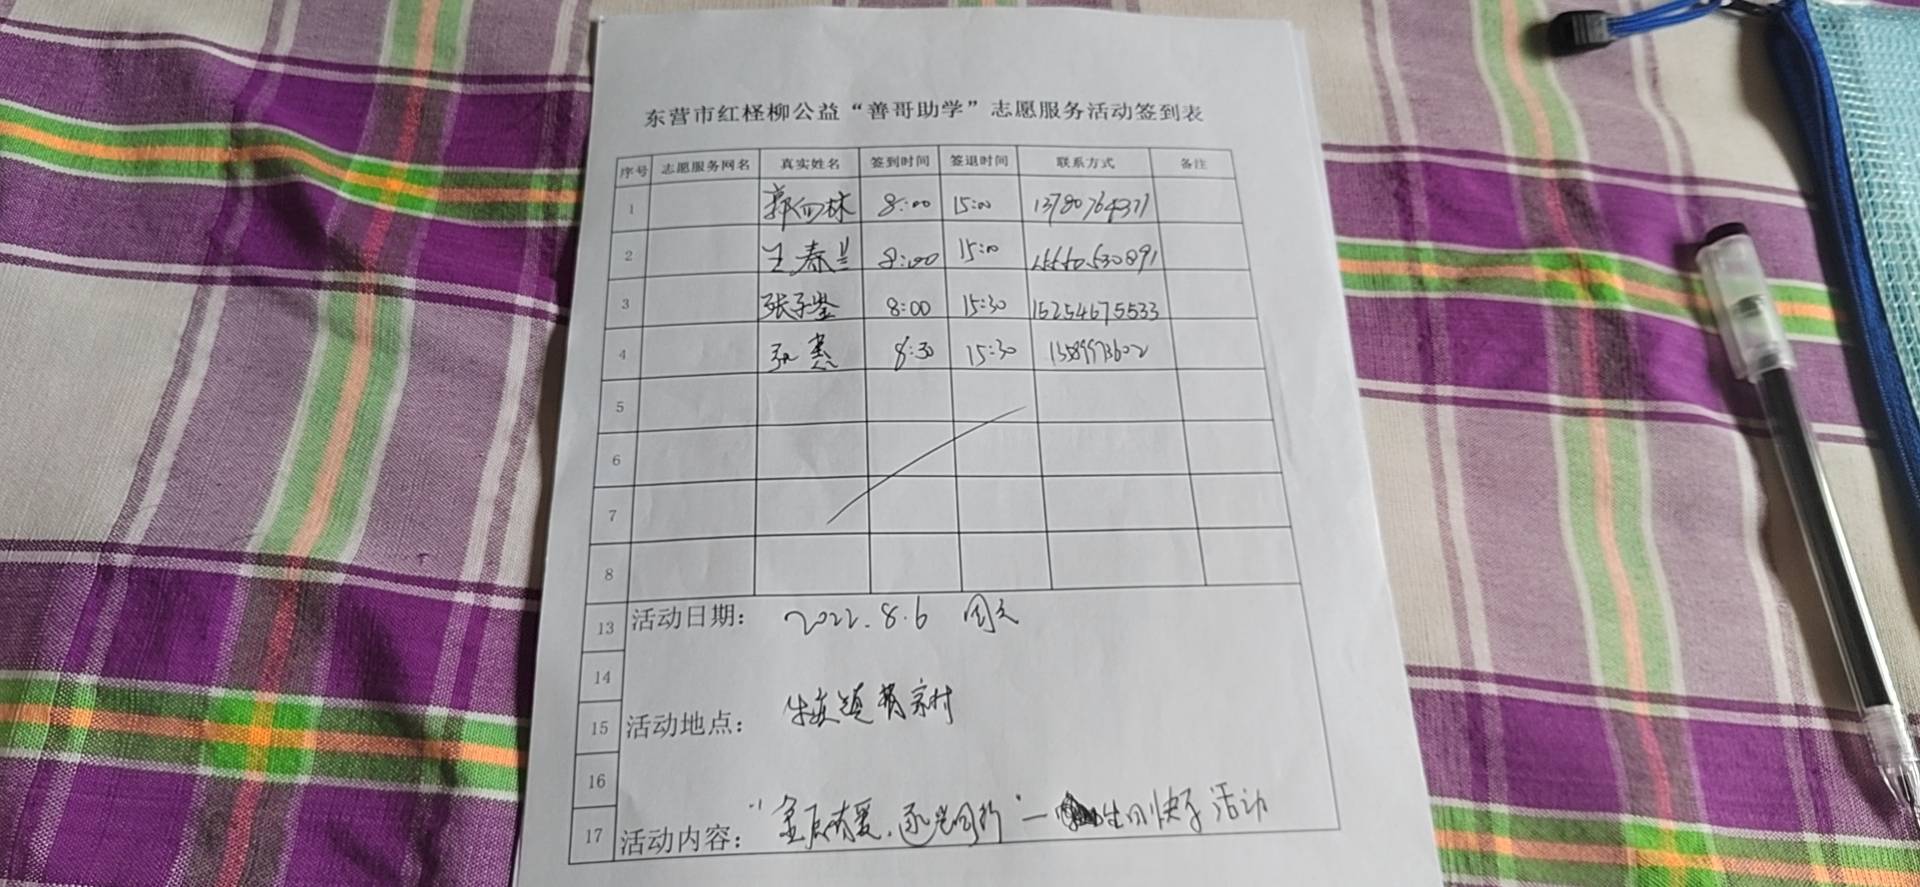 东营市红柽柳公益“善哥助学”志愿服务活动签到表
序号 志愿服务网名 真实姓名 签到时间 签退时间 联系方式 备注
1 郭向林 8:00 15:00 13780764371
2 王春兰 8:00 15:00
3 张子鉴 8:00 15:30 15254675533
4 8:30 15:30
5
6
7
8
13 活动日期: 2022.8.6 周六
14
15 活动地点: 牛庄镇 家村
16
17 活动内容: 生日快乐活动